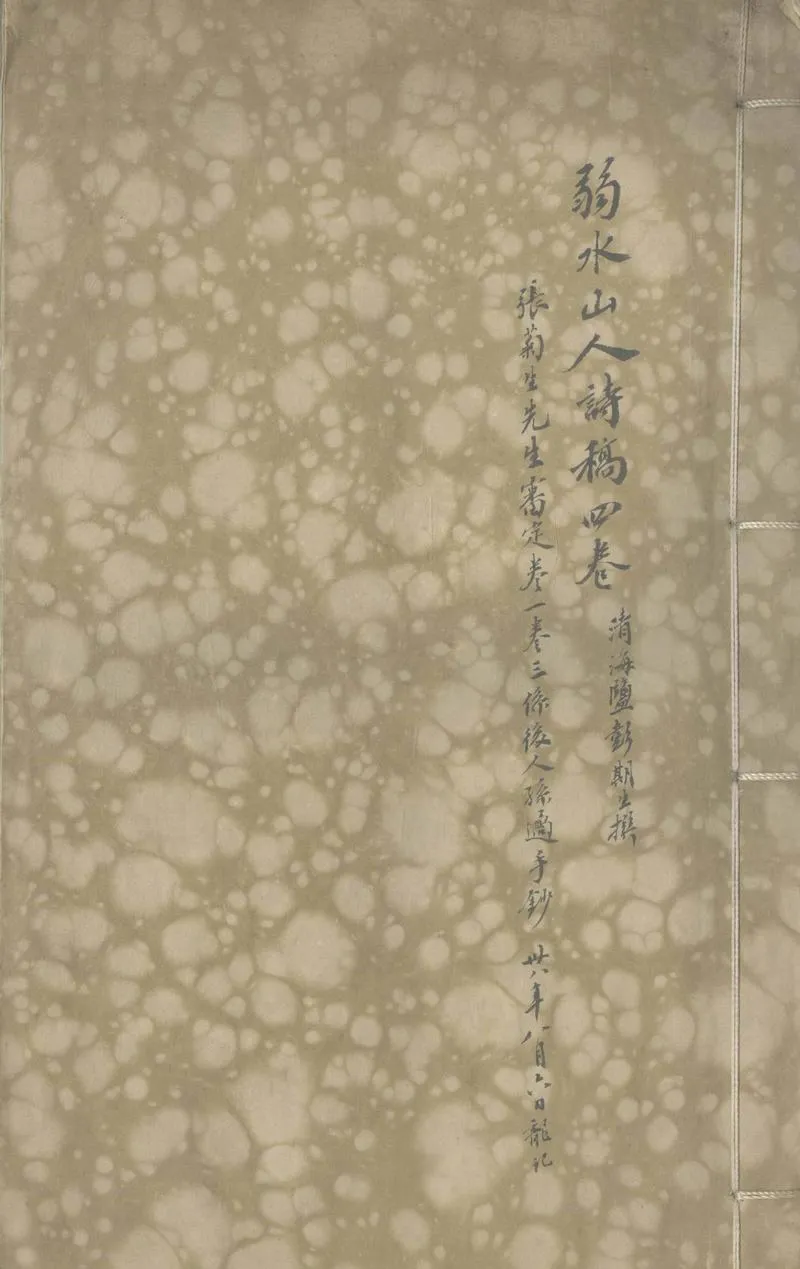 弱水山人詩稿四卷
清海鹽彭期生撰
張菊生先生審定卷一卷三係後人孫遹手鈔 卅八年八月六日龍記